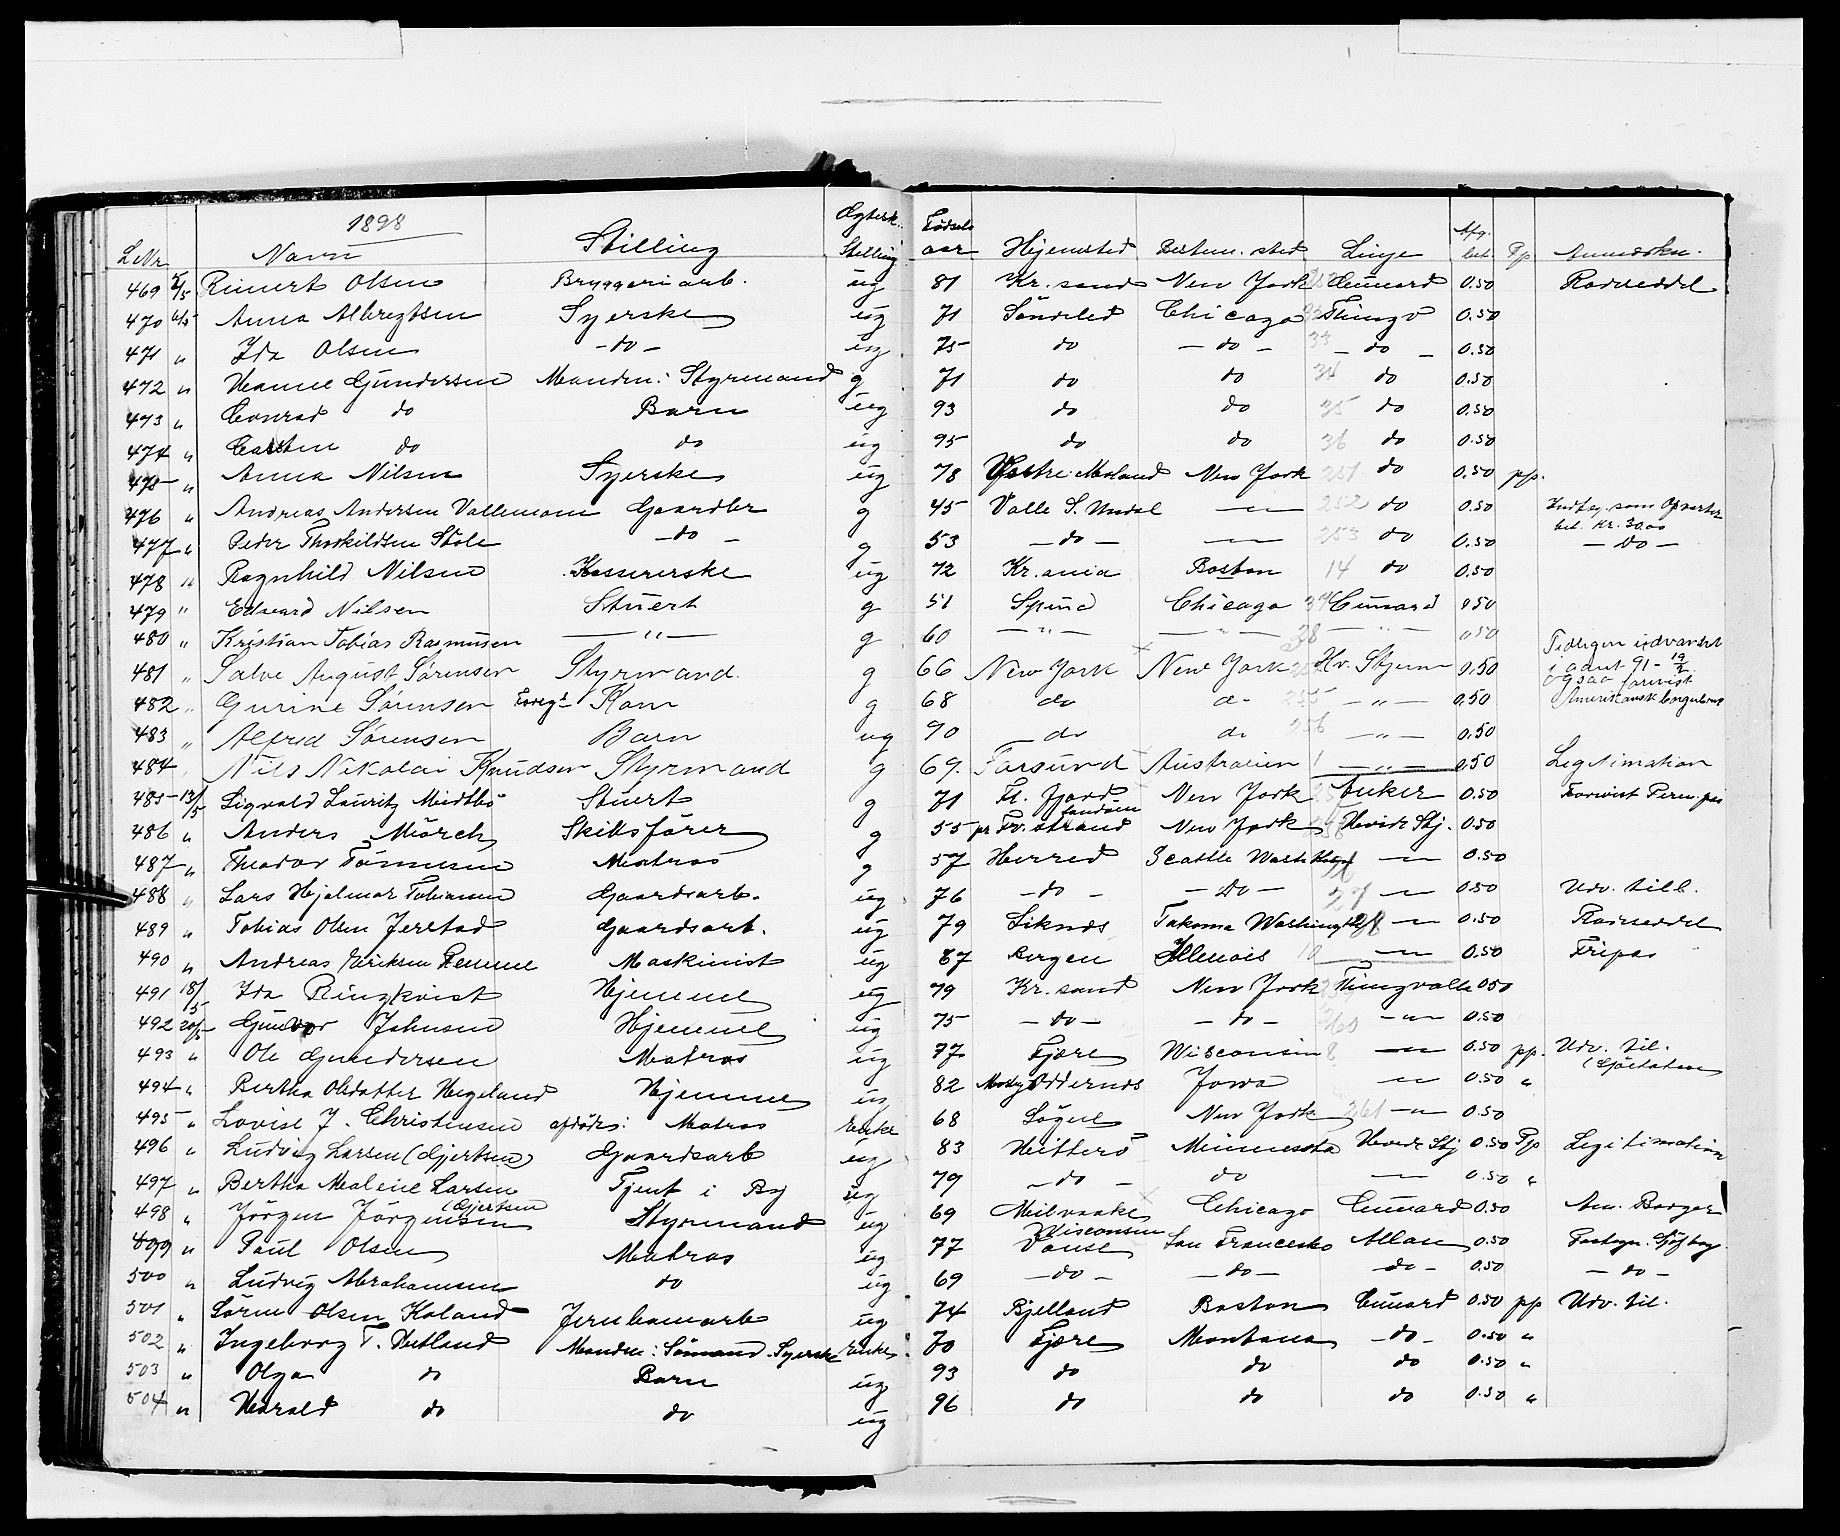 1898
LNr Navn Stilling Ægtesk. Stilling Fødsels aar Hjemsted Bestem. sted Linje Afg. bet. Pp Anmerkn.
469 5/5 Reinert Olsen Bryggeriarb. ug 81 Kr. sand New York Cunard 0.50 Rodseddel
470 6/5 Anna Albregtsen Syerske ug 71 Söndeled Chicago 32 Thingv 0.50
471 " Ida Olsen - do - ug 75 do - do - 33 - do - 0.50
472 " Hanne Gundersen Manden: Styrmand g 71 do do 34 do 0.50
473 " Conrad do Barn ug 93 do do 35 do 0.50
474 " Carsten do do ug 95 do do 36 do 0.50
475 " Anna Nilsen Syerske ug 78 Vestre Moland New York 251 do 0.50 pp.
476 " Andreas Andersen Vallemoen Gaardbr g 45 Valle S. Undal — " — 252 do 0.50 Indteg. som Opvarter bet. Kr. 30.00
477 " Peder Thorkildsen Stöle - do - g 53 - do - — " — 253 do 0.50 - Do -
478 " Ragnhild Nilsen Kassererske ug 72 Kr. ania Boston 14 do 0.50
479 " Edvard Nilsen Stuert g 51 Spind Chicago 37 Cunard 0.50
480 " Kristian Tobias Rasmussen — " — g 60 — " — — " — 38 — " — 0.50
481 " Salve August Sørensen Styrmand. g 66 New York New York Hv. Stjern 0,50 Tidligere udvandret i aaret 91 - 19/2 ogsaa forevist
482 " Gurine Sørensen Forrige Kon g 68 do do 255 — " — 0,50 Amerikansk borgerbrev
483 " Alfred Sørensen Barn ug 90 do do 256 — " — 0,50
484 " Nils Nikolai Knudsen Styrmand g 69. Farsund Australien 1 — " — 0,50 Legitimation
485 13/5 Sigvald Lauritz Midtbö Stuert g 71 Fl. fjord New York Anker 0.50 Forevist Perm. pas
486 " Anders Mörch Skibsförer g 55 pr Fv. strand New York Hvide Stj. 0.50
487 " Theodor Tönnesen Matros g 57 Herred Seattle Wash — " — 0.50
488 " Lars Hjalmar Tobiassen Gaardsarb. ug 76 - do - - Do - — " — 0.50 Udv. till.
489 " Tobias Olsen Jerstad Gaardsarb. ug 79 Siknæs Takoma Washingt — " — 0.50 Rodseddel
490 " Andreas Eriksen Maskinist ug 87 Bergen Illinois 10 — " — 0.50 Fripas
491 18/5 Ida Ringkvist Hjemme ug 79 Kr. sand New York Thingvalle 0.50
492 20/5 Gunvor Johnsen Hjemme ug 75 - do - - do - 260 — " — 0.50
493 " Ole Gundersen Matros ug 77 Fjære Wisconsin 8 — " — 0.50 pp. Udv. til.
494 " Bertha Olsdatter Hegeland Hjemme ug 82 Oddernæs Jowa — " — 0.50 "
495 " Lovise J. Christensen afdöde: Matros Enke 68 Sögne New York 261 — " — 0.50
496 " Ludvig Larsen (Gjertsen) Gaardsarb ug 83 Hitterö Minnesota Hvide Stj 0.50 Pp Legitimation
497 " Bertha Malene Larsen (Gjertsen Tjent i By ug 79 - do - do — " — 0.50 "
498 " Jörgen Jörgensen Styrmand ug 69 Milvaake Wisconsin Chicago Cunard 0.50 Am. Borger
499 " Paul Olsen Matros ug 77 Vanse San Francesko Allan 0.50
500 " Ludvig Abrahamsen do ug 69 - do - - do - - do - 0.50 - do -
501 " Sören Olsen Koland Jernbanearb ug 74 Bjelland Boston Cunard 0.50 pp Udv. til.
502 " Ingeborg T. Manden: Sömand. Syerske Enke 70 Fjære Montana - do - 0.50 "
503 " Olga do Barn ug 93 do do do 0.50 "
504 " Harald do do ug 96 do do do 0.50 "